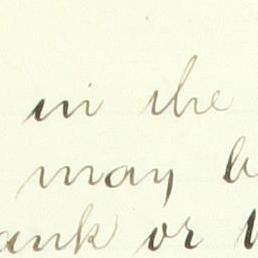 in the
may b
ank or